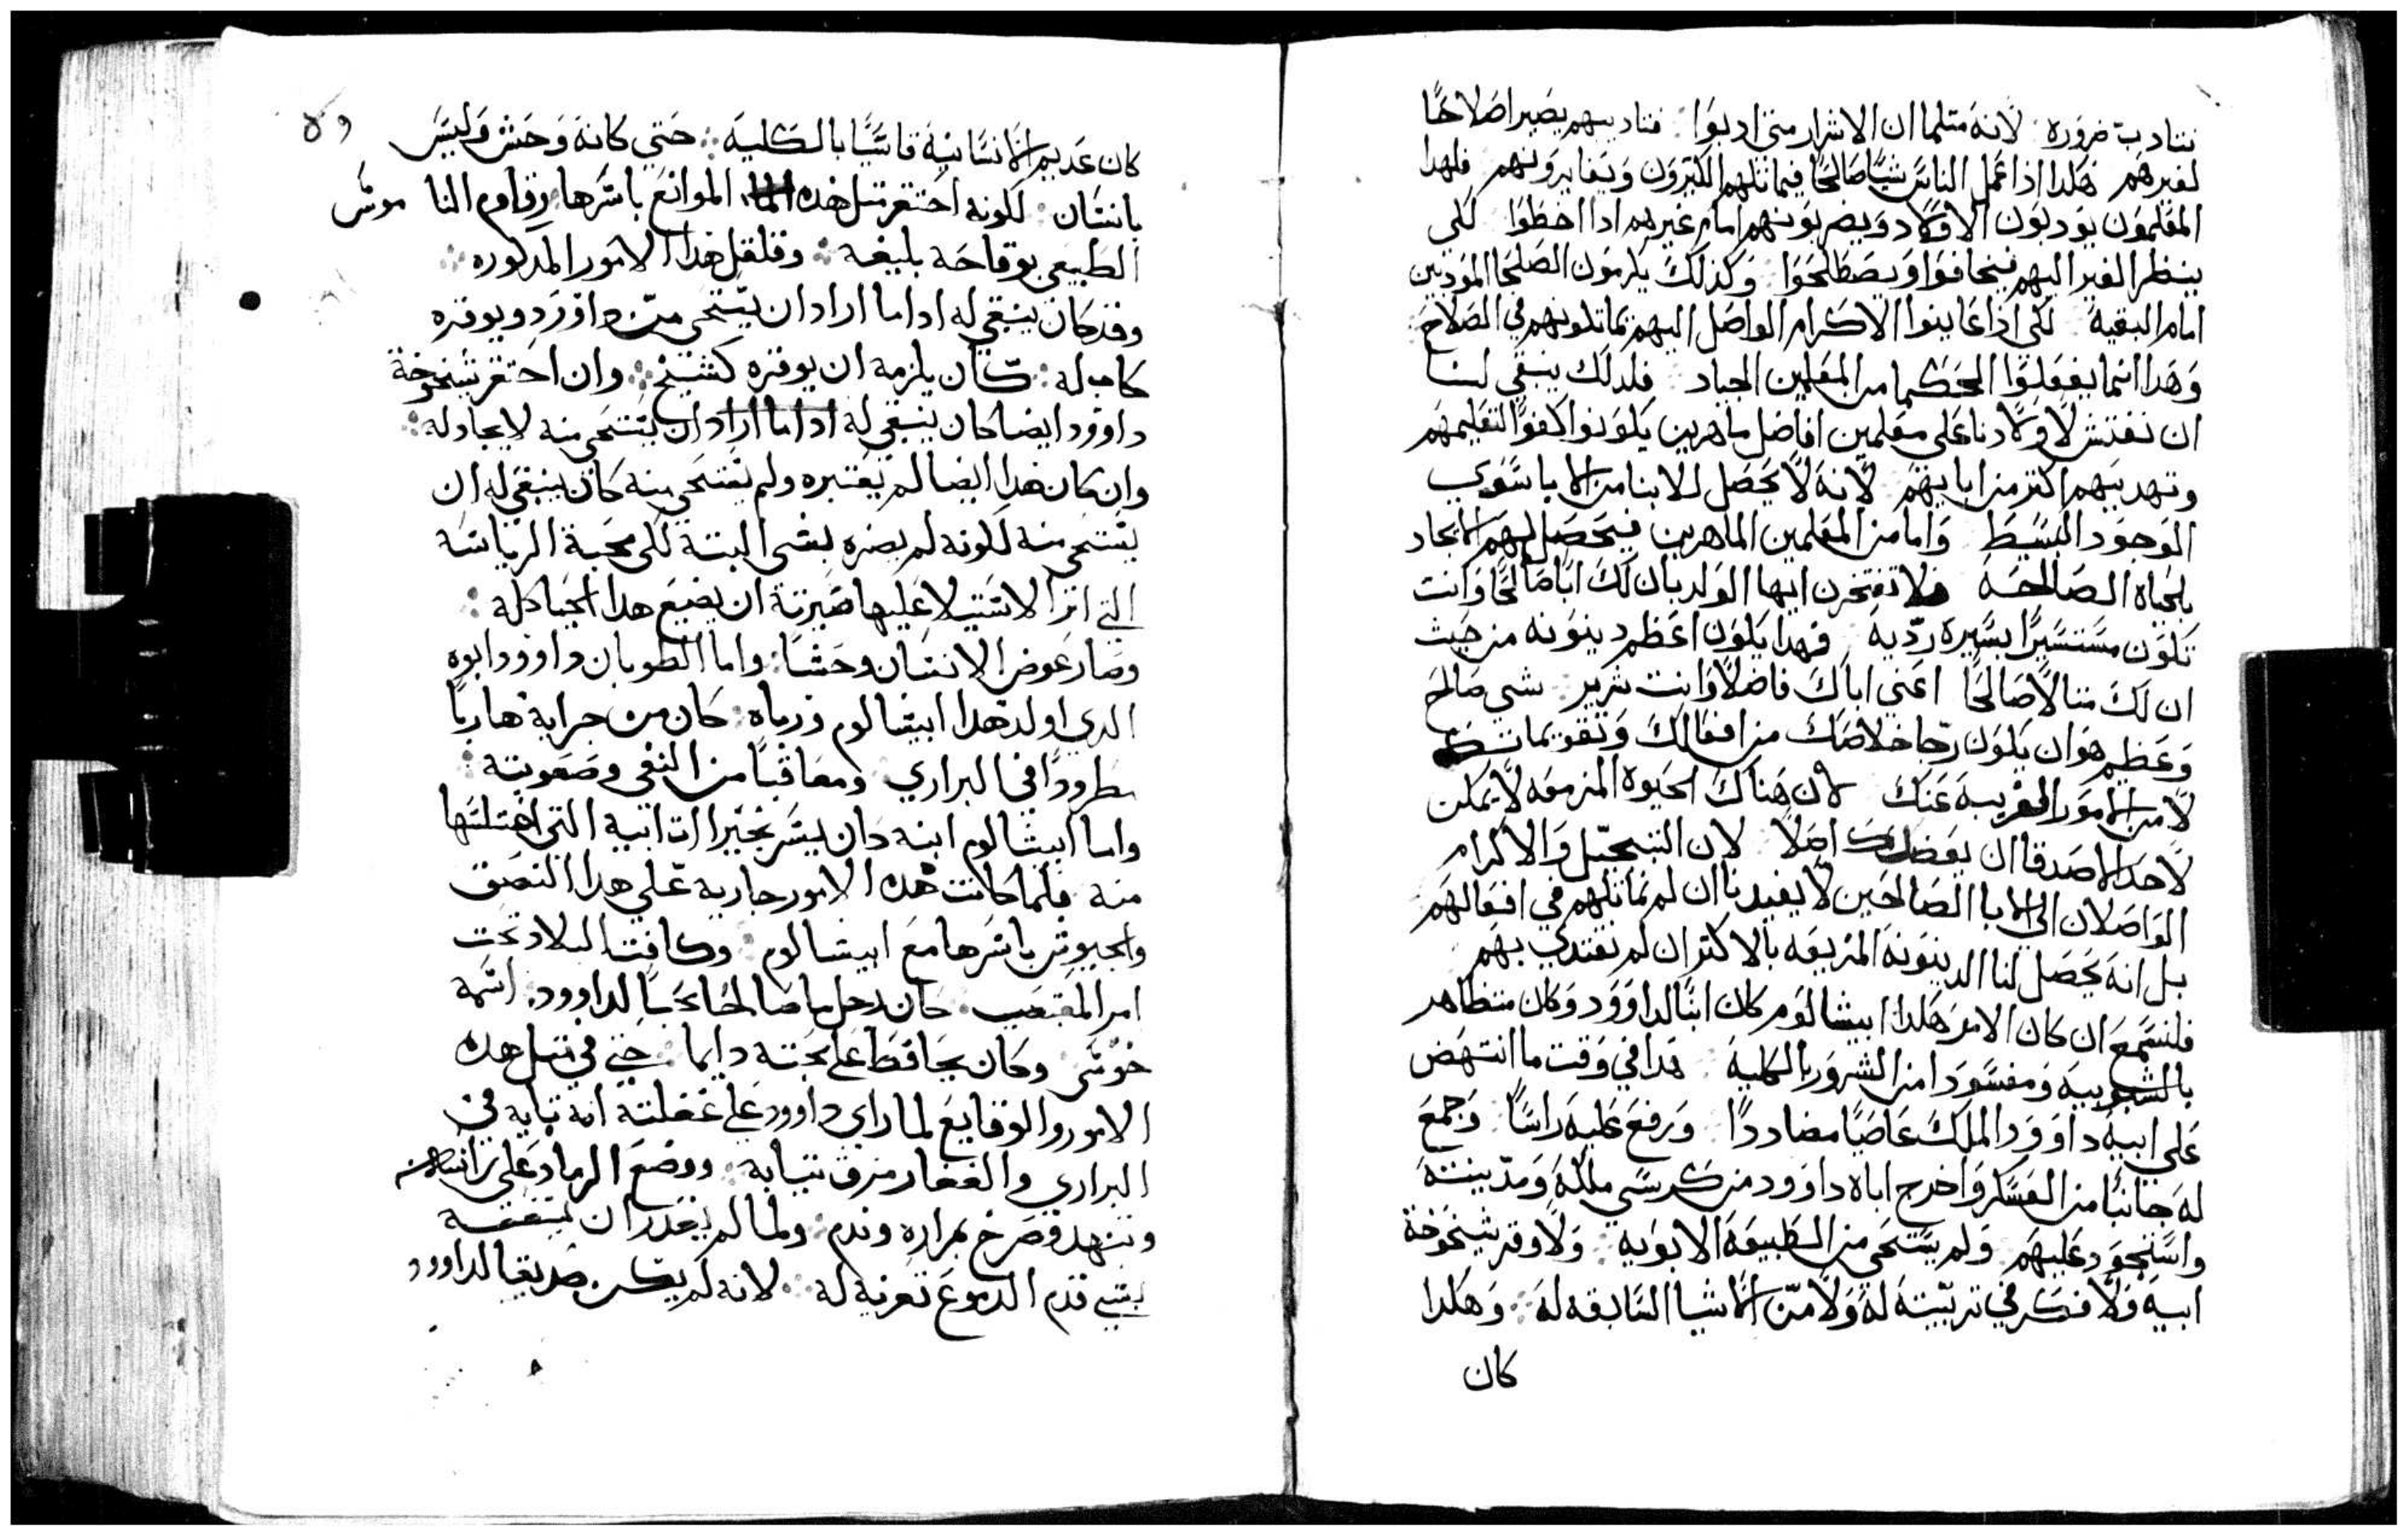 نتادب ضروره لانه متلما ان الاشرار متي ادبوا فتاديبهم يصير اصلاحًا
لغيرهم هكدا ادا عمل الناس شيًا صالحًا فيماتلهم الكتيرون ويغايرونهم فلهدا
المعلمون يودبون الاولاد ويضربونهم امام غيرهم ادا اخطوا لكي
ينظر الغير اليهم فيخافوا ويصطلحوا وكذلك يكرمون الصلحا المودبين
امام البقيه لكي اذا عاينوا الاكرام الواصل اليهم يماتلونهم في الصلاح
وهدا انما يفعلوا الحكما من المعلمين الجياد فلدلك ينبغي لنا
ان نفتش لاولادنا على معلمين افاضل ماهرين يكونوا كفوًا لتعليمهم
وتهديبهم اكتر من ابايهم لانه لا يحصل للابنا من الابا سوي
الوجود البسيط واما من المعلمين الماهرين فيحصل لهم الايجاد
بالحياه الصالحه فلا تفتخرن ايها الولد بان لك ابًا صالحًا وانت
تكون مستسيرًا بسيره رديه فهدا يكون اعظم دينونه من حيث
ان لك متالاً صالحًا اعني اباك فاضلاً وانت شرير شي صالح
وعظيم هو ان يكون رجا خلاصك من افعالك وتقويماتك
لا من الامور الغريبه عنك لان هناك الحيوه المزمعه لا يمكن
لاحد الاصدقا ان يعضدك اصلاً لان التبجيل والاكرام
الواصلان الي الابا الصالحين لا يفيدنا ان لم نماتلهم في افعالهم
بل انه يحصل لنا الدينونه المريعه بالاكتر ان لم نقتدي بهم
فلنسمع ان كان الامر هكدا ابيشالوم كان ابنًا لداوود وكان متظاهر
بالشعوبيه ومفسودا من الشرور بالكليه هدا في وقت ما انتهض
على ابيه داوود الملك عاصيًا مضاددًا ورفع عليه راسًا وجمع
له جانبًا من العسكر واخرج اباه داوود من كرسي ملكه ومدينته
واستحود عليهم ولم يستحي من الطبيعه الابويه ولا وقر شيخوخة
ابيه ولا فكر في تربيته له ولا من الاشيا السابقه له وهكدا
كان
كان عديم الانسانيه قاسيًا بالكليه حتي كانه وحش وليس
بانسان لكونه احتقر متل هذه الموانع باسرها وقاوم الناموس
الطبيعي بوقاحه بليغه وقلقل هدا الامور المدكوره
وقد كان ينبغي له اداما اراد ان يستحي من داوود ويوقره
كاب له كان يلزمه ان يوقره كشيخ وان احتقر شيخوخة
داوود ايضا كان ينبغي له اداما اراد ان يستحي منه لا يجادله
وان كان هدا ايضا لم يعتبره ولم يستحي منه كان ينبغي له ان
يستحي منه لكونه لم يضره بشي البتة لكن محبة الرياسة
التي اترا الاستيلا عليها صيرته ان يضيع هدا الحيا كله
وصار عوض الانسان وحشًا واما الطوبان داوود ابوه
الدي اولد هدا ابيشالوم ورباه كان من جرايه هاربًا
مطرودًا في البراري ومعاقبًا من النفي وصعوبته
واما ابيشالوم ابنه كان يسر بخيرات ابيه التي اختلسها
منه فلما كانت هده الامور جاريه علي هدا النسق
والجيوش باسرها مع ابيشالوم وكافت البلاد تحت
امر المغتصب كان رجل ما صالحًا محبًا لداوود اسمه
خوسي وكان يحافظ على محبته دايما حتي في متل هده
الامور والوقايع لما راي داوود علي غفلته انه تايه في
البراري والقفار مزق تيابه ووضع الرماد علي راسه
وتنهد وصرخ بمراره وندم ولما لم يقدر ان يسعفه
بشي قدم الدموع تعزيه له لانه لم يكن صديقا لداوود